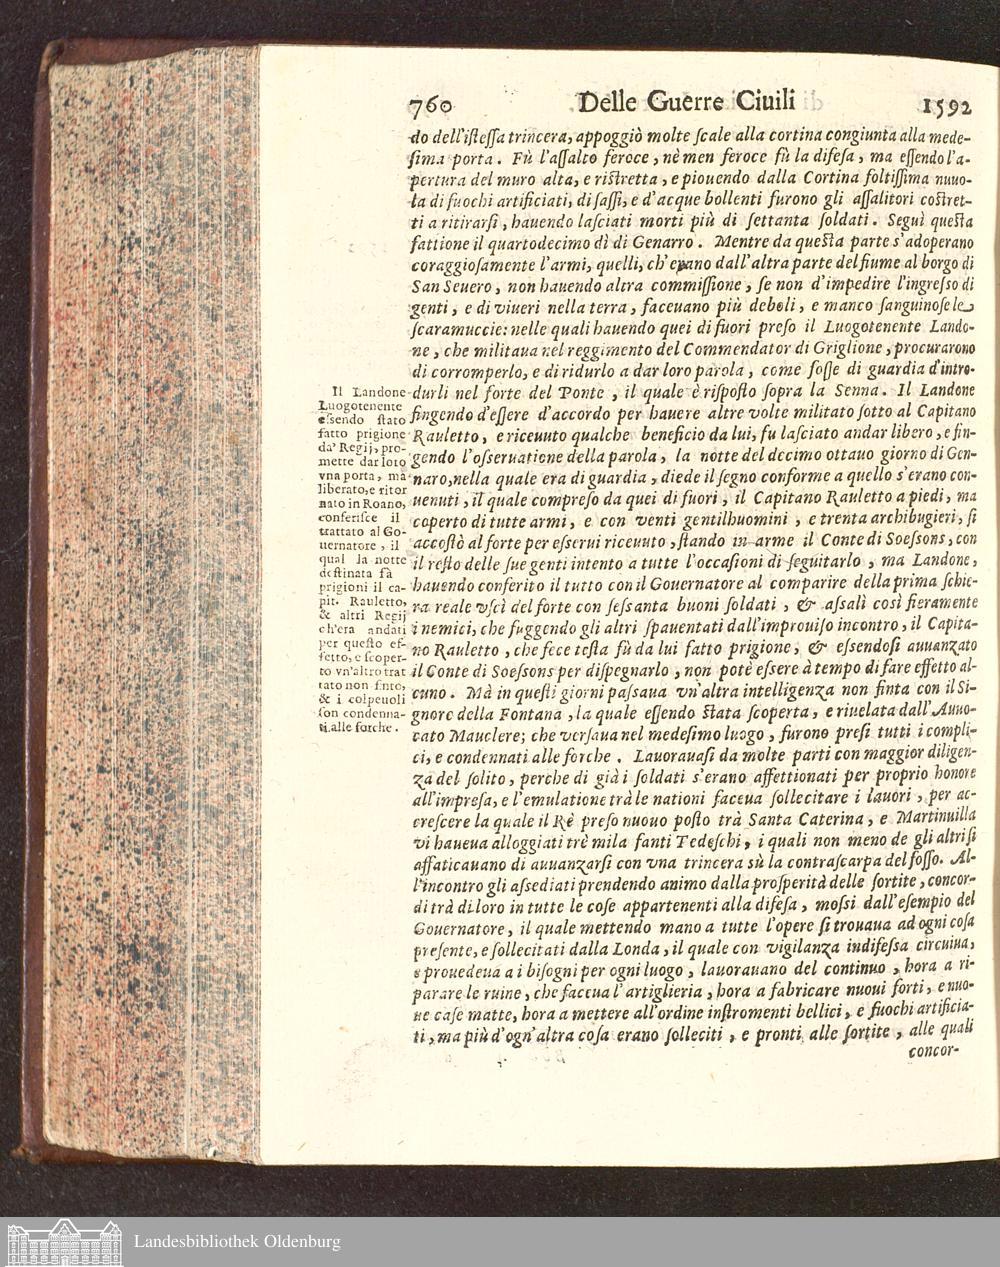 760 Delle Guerre Ciuili 1592
do dell'iſteſſa trincera, appoggiò molte ſcale alla cortina congiunta alla mede-
ſima porta. Fù l'aſſalto feroce, nè men feroce fù la difeſa, ma eſſendo l'a-
pertura del muro alta, e riſtretta, e piouendo dalla Cortina foltiſſima nuuo-
la di fuochi artificiati, di ſaſſi, e d'acque bollenti furono gli aſſalitori coſtret-
ti a ritirarſi, hauendo laſciati morti più di ſettanta ſoldati. Seguì queſta
fattione il quartodecimo dì di Genarro. Mentre da queſta parte s'adoperano
coraggioſamente l'armi, quelli, ch'erano dall'altra parte del fiume al borgo di
San Seuero, non hauendo altra commiſſione, ſe non d'impedire l'ingreſſo di
genti, e di viueri nella terra, faceuano più deboli, e manco ſanguinoſe le
ſcaramuccie: nelle quali hauendo quei di fuori preſo il Luogotenente Lando-
ne, che militaua nel reggimento del Commendator di Griglione, procurarono
di corromperlo, e di ridurlo a dar loro parola, come foſſe di guardia d'intro-
durli nel forte del Ponte, il quale è riſpoſto ſopra la Senna. Il Landone
fingendo d'eſſere d'accordo per hauere altre volte militato ſotto al Capitano
Rauletto, e riceuuto qualche beneficio da lui, fu laſciato andar libero, e fin-
gendo l'oſseruatione della parola, la notte del decimo ottauo giorno di Gen-
naro, nella quale era di guardia, diede il ſegno conforme a quello s'erano con-
uenuti, il quale compreſo da quei di fuori, il Capitano Rauletto a piedi, ma
coperto di tutte armi, e con venti gentilhuomini, e trenta archibugieri, ſi
accoſtò al forte per eſserui riceuuto, ſtando in arme il Conte di Soeſsons, con
il reſto delle ſue genti intento a tutte l'occaſioni di ſeguitarlo, ma Landone,
hauendo conferito il tutto con il Gouernatore al comparire della prima ſchie-
ra reale vſcì del forte con ſeſsanta buoni ſoldati, & aſsalì così fieramente
i nemici, che fuggendo gli altri ſpauentati dall'improuiſo incontro, il Capita-
no Rauletto, che fece teſta fù da lui fatto prigione, & eſsendoſi auuanzato
il Conte di Soeſsons per diſpegnarlo, non potè eſsere à tempo di fare effetto al-
cuno. Mà in queſti giorni paſsaua vn'altra intelligenza non finta con il Si-
gnore della Fontana, la quale eſſendo ſtata ſcoperta, e riuelata dall'Auuo-
cato Mauclere; che verſaua nel medeſimo luogo, furono preſi tutti i compli-
ci, e condennati alle forche. Lauorauaſi da molte parti con maggior diligen-
za del ſolito, perche di già i ſoldati s'erano affettionati per proprio honore
all'impreſa, e l'emulatione trà le nationi faceua ſollecitare i lauori, per ac-
creſcere la quale il Rè preſo nuouo poſto trà Santa Caterina, e Martinuilla
vi haueua alloggiati trè mila fanti Tedeſchi, i quali non meno de gli altri ſi
affaticauano di auuanzarſi con vna trincera sù la contraſcarpa del foſſo. Al-
l'incontro gli aſsediati prendendo animo dalla proſperità delle ſortite, concor-
di trà di loro in tutte le coſe appartenenti alla difeſa, moſsi dall'eſempio del
Gouernatore, il quale mettendo mano a tutte l'opere ſi trouaua ad ogni coſa
preſente, e ſollecitati dalla Londa, il quale con vigilanza indifeſsa circuiua,
e prouedeua a i biſogni per ogni luogo, lauorauano del continuo, hora a ri-
parare le ruine, che faceua l'artiglieria, hora a fabricare nuoui forti, e nuo-
ue caſe matte, hora a mettere all'ordine inſtromenti bellici, e fuochi artificia-
ti, ma più d'ogn'altra coſa erano ſolleciti, e pronti alle ſortite, alle quali
concor-
Il Landone
Luogotenente
eſsendo ſtato
fatto prigione
da' Regij, pro-
mette dar loro
vna porta, mà
liberato, e ritor
nato in Roano,
conferiſce il
trattato al Go-
uernatore, il
qual la notte
deſtinata fà
prigioni il ca-
pit. Rauletto,
& altri Regij
ch'era andati
per queſto ef-
fetto, e ſcoper-
to vn'altro trat
tato non finto,
& i colpeuoli
ſon condenna-
ti alle forche.
Landesbibliothek Oldenburg